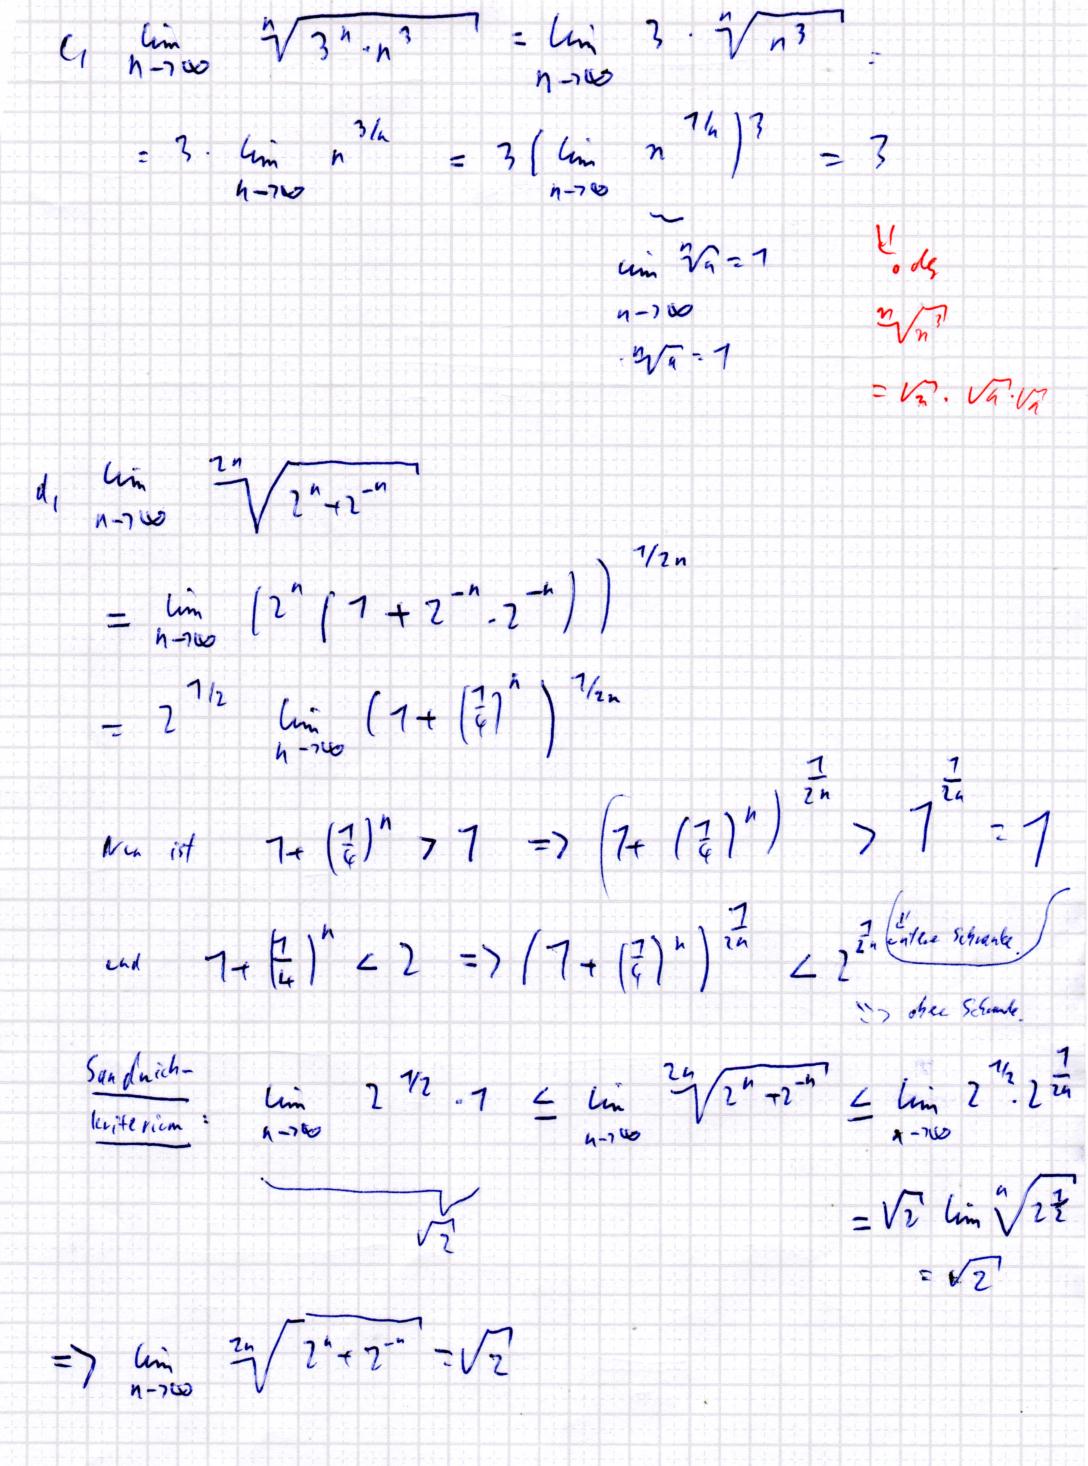 c, lim n→∞ ⁿ√(3ⁿ·n³) = lim n→∞ 3 · ⁿ√(n³) =
= 3 · lim n→∞ n^(3/n) = 3 (lim n→∞ n^(1/n))³ = 3
lim n→∞ ⁿ√n = 1
ⁿ√a = 1
ⁿ√(n³)
= √n · √n · √n
d, lim n→∞ ²ⁿ√(2ⁿ+2⁻ⁿ)
= lim n→∞ (2ⁿ (1 + 2⁻ⁿ · 2⁻ⁿ))^(1/2n)
= 2^(1/2) lim n→∞ (1 + (1/4)ⁿ)^(1/2n)
Nun ist 1 + (1/4)ⁿ > 1 => (1 + (1/4)ⁿ)^(1/2n) > 1^(1/2n) = 1
untere Schranke.
und 1 + (1/4)ⁿ < 2 => (1 + (1/4)ⁿ)^(1/2n) < 2^(1/2n)
=> obere Schranke.
Sandwich-
kriterium: lim n→∞ 2^(1/2) · 1 ≤ lim n→∞ ²ⁿ√(2ⁿ+2⁻ⁿ) ≤ lim n→∞ 2^(1/2) · 2^(1/2n)
√2
= √2 lim ⁿ√(2^(1/2))
= √2
=> lim n→∞ ²ⁿ√(2ⁿ+2⁻ⁿ) = √2